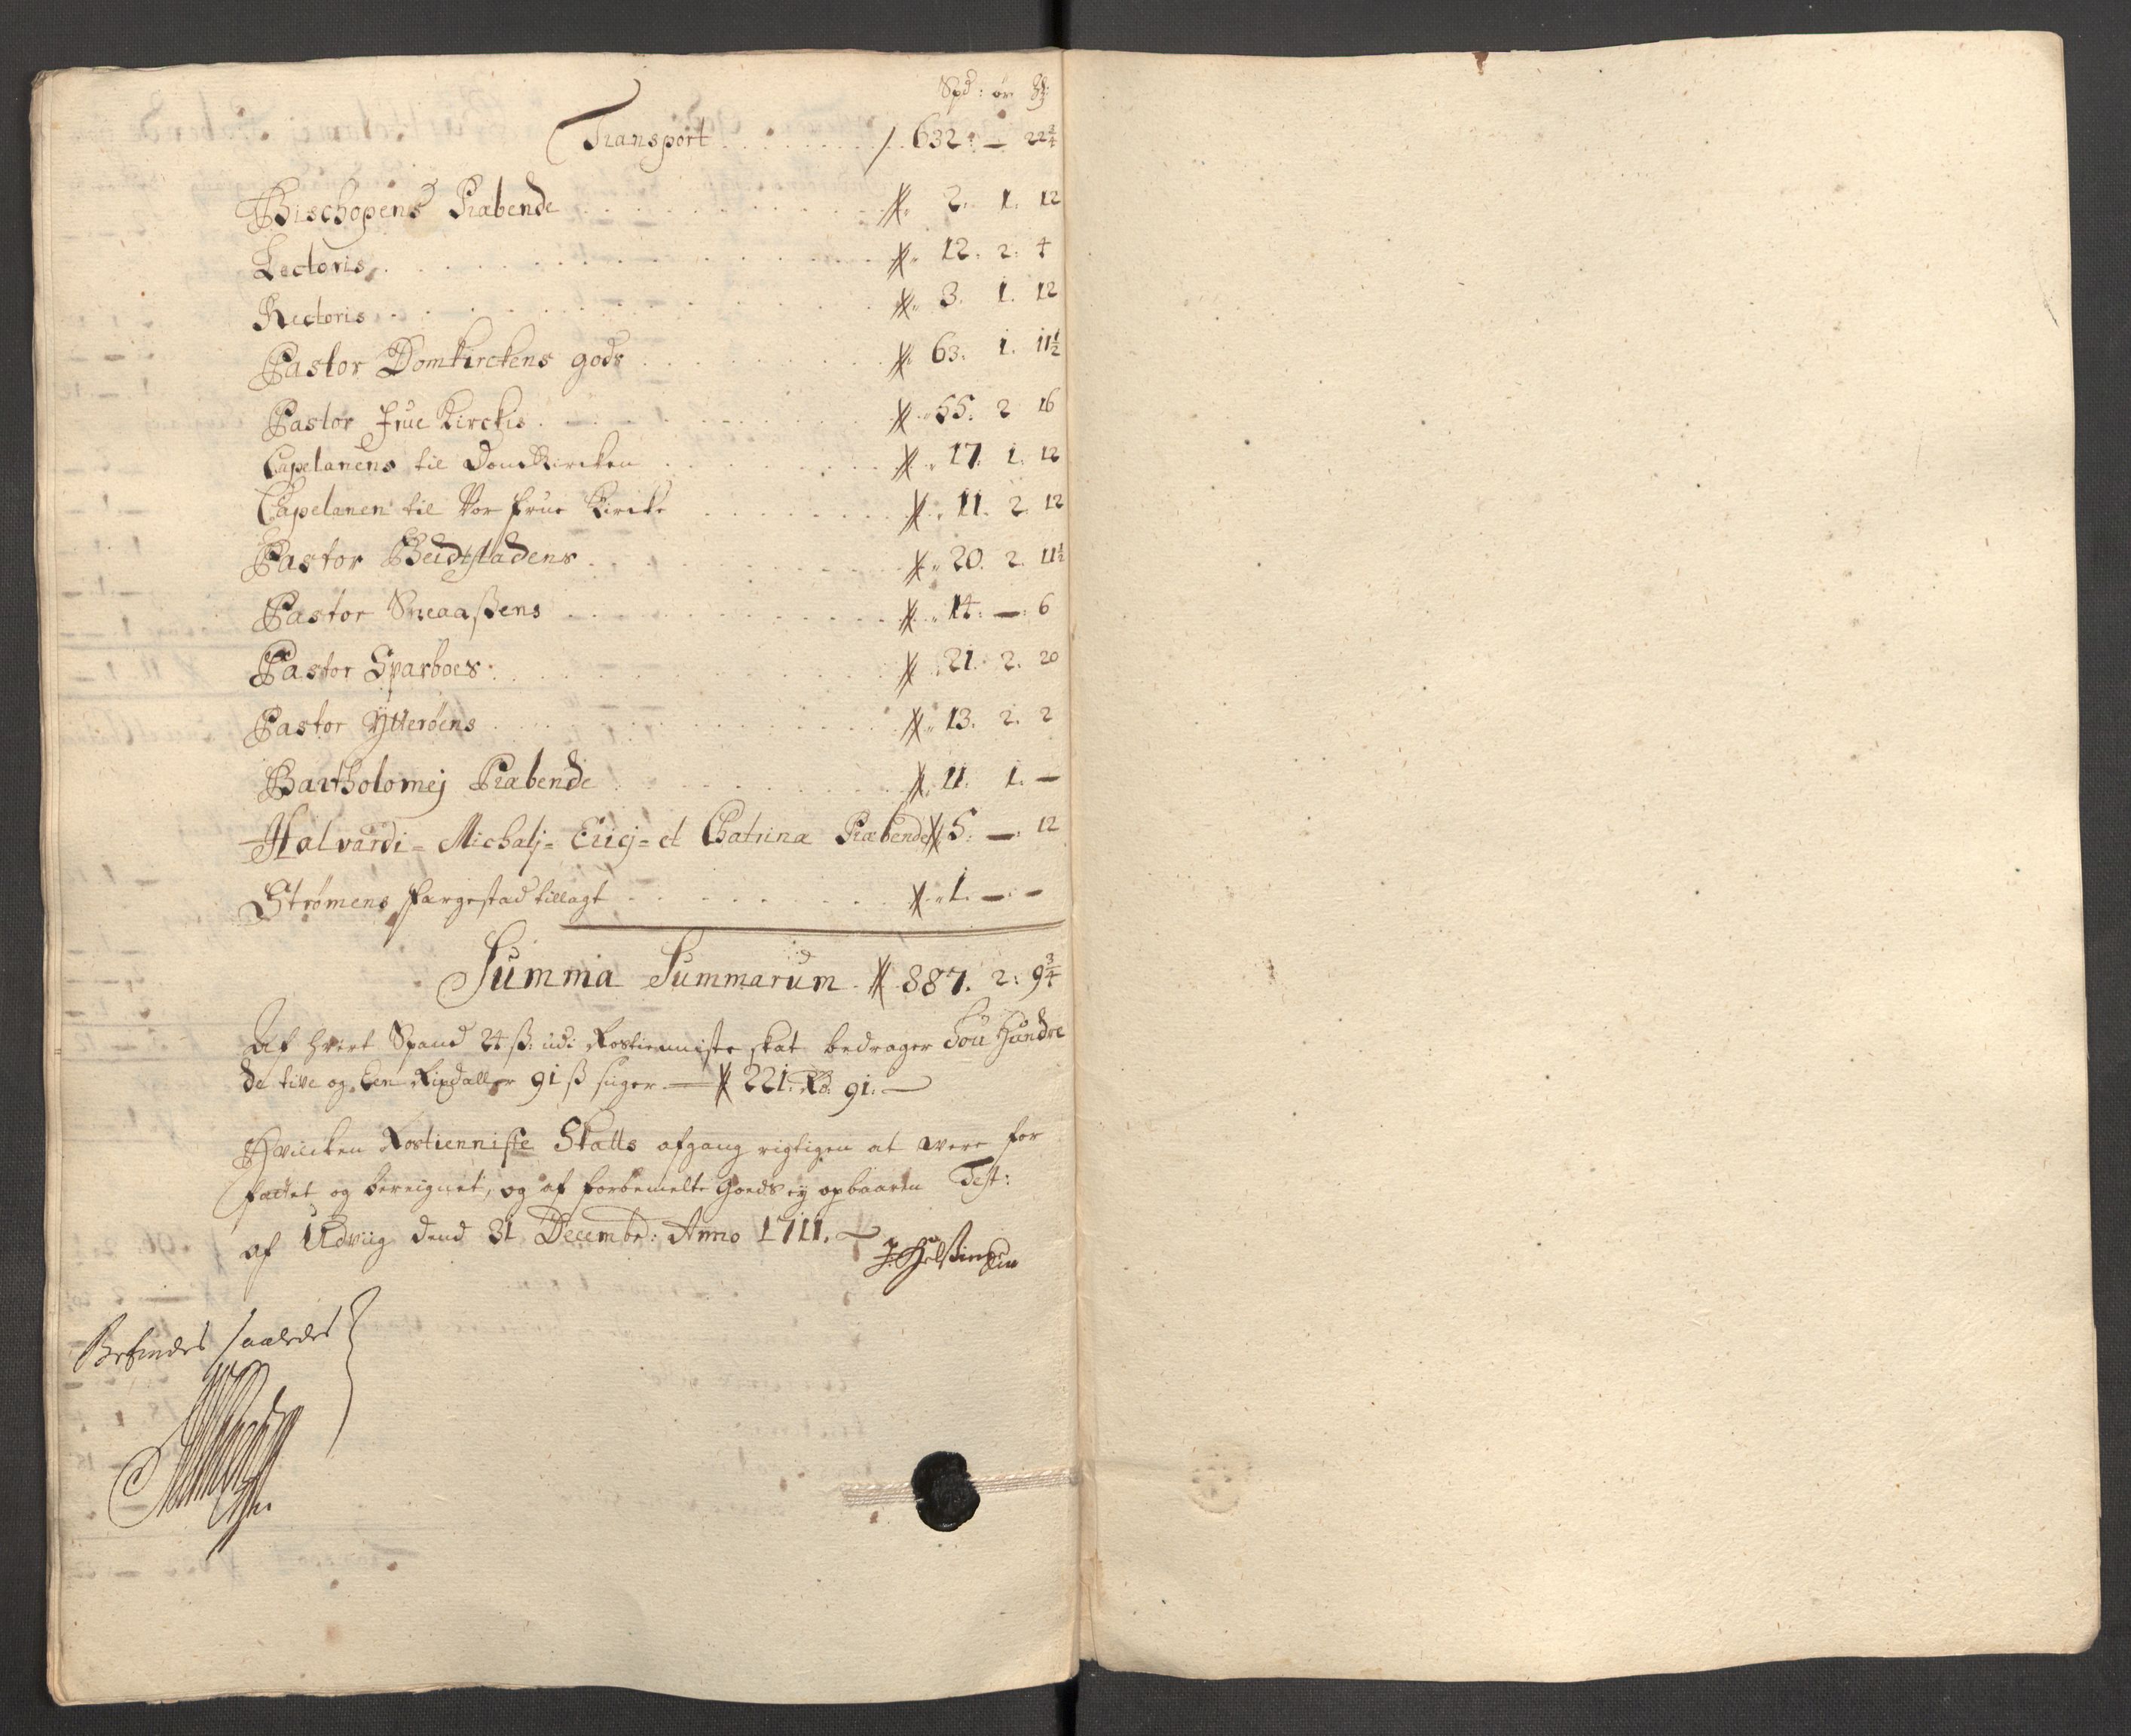 Spd: ør
Transport . . . . . . . . / . 632: — 22¾
Bischopens Præbende . . . . . . . 2. 1. 12
Lectoris . . . . . . . 12. 2. 4
Rectoris . . . . . . . 3. 1. 12
Pastor Domkirckens gods . . . . . . . 63. 1. 11½
Pastor frue Kirckis . . . . . . . 55. 2 16
Capelanens til DomKircken . . . . . . . 17. 1. 12
Capelanen til Vor frue Kircke . . . . . . . 11. 2. 12
Pastor Beidstadens . . . . . . . 20. 2. 11½
Pastor Sneaaßens . . . . . . . 14: —: 6
Pastor Sparboes: . . . . . . . 21. 2. 20
Pastor Ÿtterøens . . . . . . . 13. 2. 2
Bartholomej Præbende . . . . . . . 11. 1. —
Halvardi = Michalj = Ericj = et Chatrina Præbende 5. —. 12
Strømens fargestad tillagt . . . . . . . 1. —. —
Summa Summarum . 887. 2: 9¾
Af hvert Spand 24 ß: udi Rostienniste skat bedrager Tou Hundre
de tive og Een Rixdaller 91 ß siger — 221. Rd. 91. —
Hvilcken Rostienniste Skatts afgang rigtigen at were for
fattet og bereignet, og af forbemelte Goeds ej opbaaren Test:
af Udviig dend 31 Decembr: Anno 1711. —
Befindes saaledes